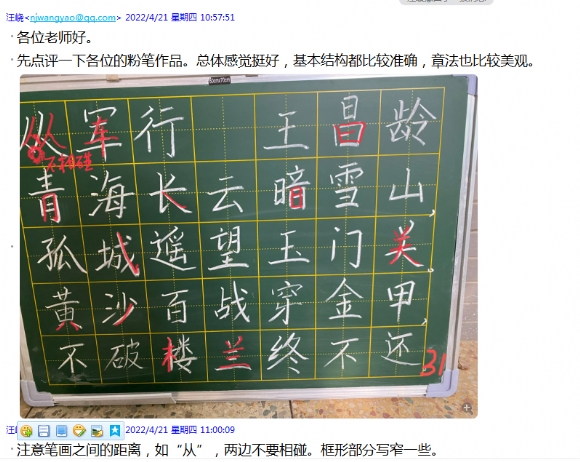 汪峣<njwangyao@qq.com> 2022/4/21 星期四 10:57:51
各位老师好。
先点评一下各位的粉笔作品。总体感觉挺好，基本结构都比较准确，章法也比较美观。
从军行 王昌龄
不相碰
青海长云暗雪山，
孤城遥望玉门关。
黄沙百战穿金甲，
不破楼兰终不还
31
2022/4/21 星期四 11:00:09
注意笔画之间的距离，如“从”，两边不要相碰。框形部分写窄一些。